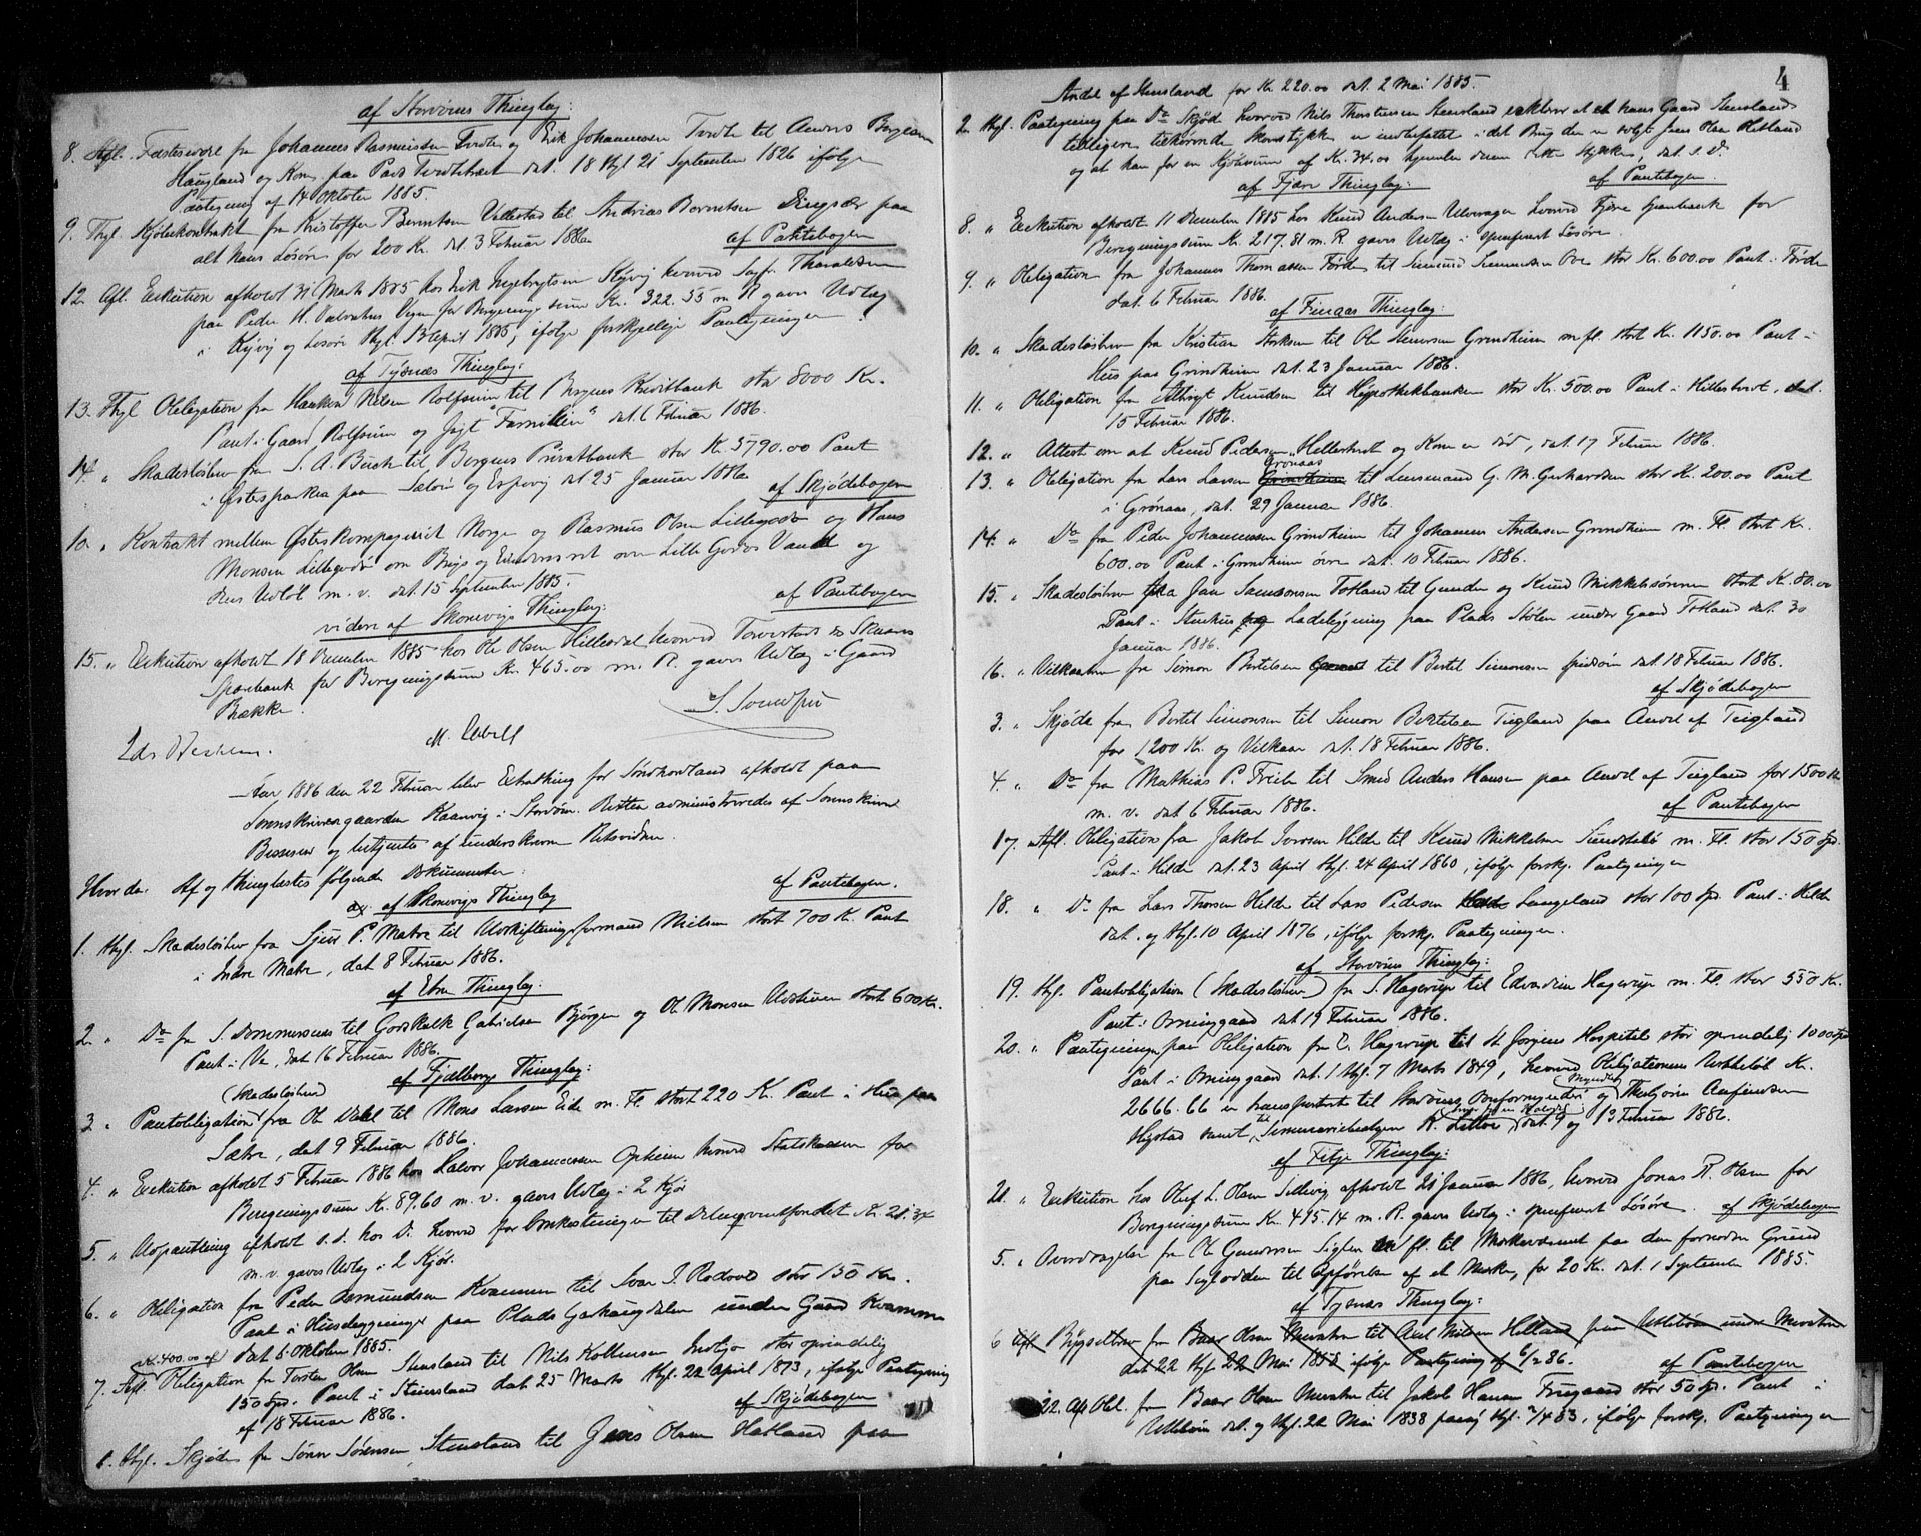 af Storöens Thinglag:
8. Afl. Fæsteseddel fra Johannes Rasmussen Tvedte og Erik Johannessen Tvedte til Anders
Haugland og Kone paa Plads Tvedtetræet dat. 18 thgl 21 September 1826 ifølge
Paategning af 14 Oktober 1885.
9. Thgl. Kjøbekontrakt fra Kristoffer Berentsen Vallestad til Andreas Berentsen Digesær paa
alt hans Løsøre for 200 Kr. dat 3 Februar 1886. af Pantebogen
12. Afl. Exekution afholdt 31 Marts 1885 hos Erik Ingebrigtsen Kyvig hvorved Sagf. Tharaldsen
paa Peder H. Valvatnes Vegne for Beregningssum Kr. 322.55 m R gaves Udlæg
i Kyvig og Løsøre thgl. April 1885, ifølge forskjellige Paategninger
af Tysnæs Thinglag:
13. Thgl Obligation fra Haaken Nilsen Rolfsnes til Bergens Kreditbank stor 8000 Kr.
Pant i Gaard Rolfsnes og Jagt "Familien" dat. 6 Februar 1886.
14. " Skadesløsbrev fra S. A. Buch til Bergens Privatbank stor Kr. 3790.00 Pant
i Østersparken paa Sælöen og Espevig dat 25 Januar 1886. af Skjødebogen
10. " Kontrakt mellem Østerskompagniet Norge og Rasmus Olsen Lillegodø og Hans
Monsen Lillegodø om Brug og Eiendomsret over Lille Godøs Vand og
dens Udløb m. v. dat. 15 September 1885. af Pantebogen
videre af Skonevigs Thinglag:
15. " Exekution afholdt 18 December 1885 hos Ole Olsen Hillesdal hvorved Torvestads & Skaares
Sparebank for Beregningssum Kr. 465.00 m. R. gaves Udlæg i Gaard
Bække.
Aar 1886 den 22 Februar blev Extrathing for Söndhordland afholdt paa
Sorenskrivergaarden Kaarevig i Storöen. Retten administreredes af Sorenskriver
og betjentes af underskrevne Retsvidner.
Hvorda: Af og thinglæstes følgende Dokumenter: af Pantebogen.
af Skonevigs Thinglag
1. thgl. Skadesløsbrev fra Sjur P. Matre til Udskiftningsformand Nielsen stort 700 Kr. Pant
i Indre Matre, dat 8 Februar 1886.
af Etne Thinglag:
2. " Do fra S. Sommersnes til Godskalk Gabrielsen Bjørgen og Ole Monsen stort 600 Kr.
Pant i Ve, dat 16 Februar 1886.
af Fjælbergs Thinglag:
(Skadesløsbrev)
3 " Pantobligation fra Ole til Mons Larsen Eide m. Fl stort 220 Kr. Pant i Hus paa
Sætre, dat 9 Februar 1886.
4. " Exekution afholdt 5 Februar 1886 hos Halvor Johannessen Opheim hvorved Statskassen for
Beregningssum Kr. 89,60 m. v. gaves Udlæg i 2 Kjør
5. " Udpantning afholdt s. d. hos Do hvorved for Omkostninger til Delinqventfondet Kr. 21.34
m. v. gaves Udlæg i 2 Kjør.
6. " Obligation fra Peder Asmundsen Kvamme til Ivar J. Rødven stor 150 Kr.
Pant i Husebygninger paa Plads Garhaugdalen under Gaard Kvamme
dat 5 Oktober 1885.
Kr. 400.00 af
7. Afl. Obligation fra Torsten Olsen Stensland til Nils Kolbensen stor oprindelig
150 Spd. Pant i Stensland dat 25 Marts thgl. 22 April 1873, ifølge Paategning
af 18 Februar 1886. af Skjødebogen
1. thgl. Skjøde fra Søren Sørensen Stensland til Jens Olsen Hetland paa
4
Andel af Stensland for Kr. 220.00 dat 2 Mai 1885.
2. thgl. Paategning paa Do Skjød hvorved Nils Thorstensen Stensland erklærer at et hans Gaard Stensland
tidligere tilhørende Skovstykke er indbefattet i det Brug den er solgt Jens Olsen Hetland
og at han for en Kjøbesum af Kr. 34.00 hjemler denne dette Stykke, dat. s. D.
af Fjære Thinglag: af Pantebogen.
8. " Exekution afholdt 11 December 1885 hos Knud Andersen Ulveragen hvorved Fjære Sparebank for
Beregningssum Kr. 217.81 m. R. gaves Udlæg i specificeret Løsøre.
9. " Obligation fra Johannes Thomassen Førde til Simund Simundsen Ove stor Kr. 600.00 Pant i Førde
dat. 6 Februar 1886.
af Finaas Thinglag:
10. " Skadesløsbrev fra Kristian Storksen til Ole Stenersen Grindheim m fl. stort Kr. 1150.00 Pant i
Hus paa Grindheim dat. 23 Januar 1886.
11. " Obligation fra Knudsen til Hypothekbanken stor Kr. 500.00 Pant i Hillestveit, dat.
15 Februar 1886.
12. " Attest om at Knud Pedersen Hellestveit og Kone er død, dat. 17 Februar 1886.
Grønaas
13. " Obligation fra Lars Larsen Grindheim til Lensmand G. M. Gerhardsen stor Kr. 200.00 Pant
i Grønaas, dat. 29 Januar 1886.
14. " Do fra Peder Johannessen Grindheim til Johannes Andersen Grindheim m. Fl. stort Kr.
600.00 Pant i Grindheim øvre dat. 10 Februar 1886.
15. " Skadesløsbrev fra Jan Samsonsen Totland til Gunder og Knud Mikkelsønner stort Kr. 80.00
Pant i Stenhus og Ladebygning paa Plads Stølen under Gaard Totland dat. 30
Januar 1886.
16. " Vilkaarsbrev fra Simon Bertelsen til Bertel Simonsen dat. 18 Februar 1886.
af Skjødebogen
3. " Skjøde fra Bertel Simonsen til Simon Bertelsen Tegland paa Andel af Teigland
for 1200 Kr. og Vilkaar dat. 18 Februar 1886.
4. " Do fra Mathias P. Freile til Smed Anders Hansen paa Andel af Teigland for 1500 Kr
m. v. dat 6 Februar 1886. af Pantebogen
17. Afl. Obligation fra Jakob Iversen Hilde til Knud Mikkelsen m. Fl. stor 150 Spd.
Pant i Hilde dat. 23 April thgl. 24 April 1860, ifølge forskj. Paategninger
18. " Do fra Lars Thorsen Hilde til Lars Pedersen Langeland stor 100 Spd. Pant i Hilde
dat. og thgl. 10 April 1876, ifølge forskj. Paategninger.
af Storöens Thinglag:
19. thgl. Pantobligation (Skadesløsbrev) fra S. Hagerup til Edvardine Hagerup m. Fl. stor 550 Kr.
Pant i Orninggaard dat 19 Februar 1886.
20. " Paategninger paa Obligation fra C. Hagerup til St. Jørgens Hospital stor oprindelig 1000 Spd
Pant i Orninggaard dat. 1 thgl. 7 Marts 1849, hvorved Obligationens Restbeløb Kr.
2666.66 er transporteret til Storöens Overformynderi og Myndling Thorbjørn Aasfindsen
Høgstad samt til Seminariebestyrer K. Lillve dat. 9 og 13 Februar 1886.
af Fitje Thinglag:
21. " Exekution hos Oluf L. Olsen Sellevig afholdt 21 Januar 1886, hvorved Jonas R. Olsen for
Beregningssum Kr. 415.14 m. R. gaves Udlæg i specificeret Løsøre. af Skjødebogen
5. " Overdragelse fra Ole Gundersen Siglen m fl. til Merkevæsenet paa den fornødne Grund
paa Siglodden til Opførelse af et Merke, for 20 Kr. dat. 1 September 1885.
af Tysnæs Thinglag:
6 Afl. Bygselbrev fra Baar Olsen Mevatne til Axel Nilsen Helland paa Utlebøen under Mevatne
dat 22 thgl 22 Mai 1858 ifølge Paategning af 6/2 86. af Pantebogen
22. Afl Obl. fra Baar Olsen Mevatne til Jakob Hansen Freugaard stor 50 Spd. Pant i
Utlebøen dat. og thgl. 22 Mai 1838 paany thgl. 2/4 83, ifølge forskj. Paategninger